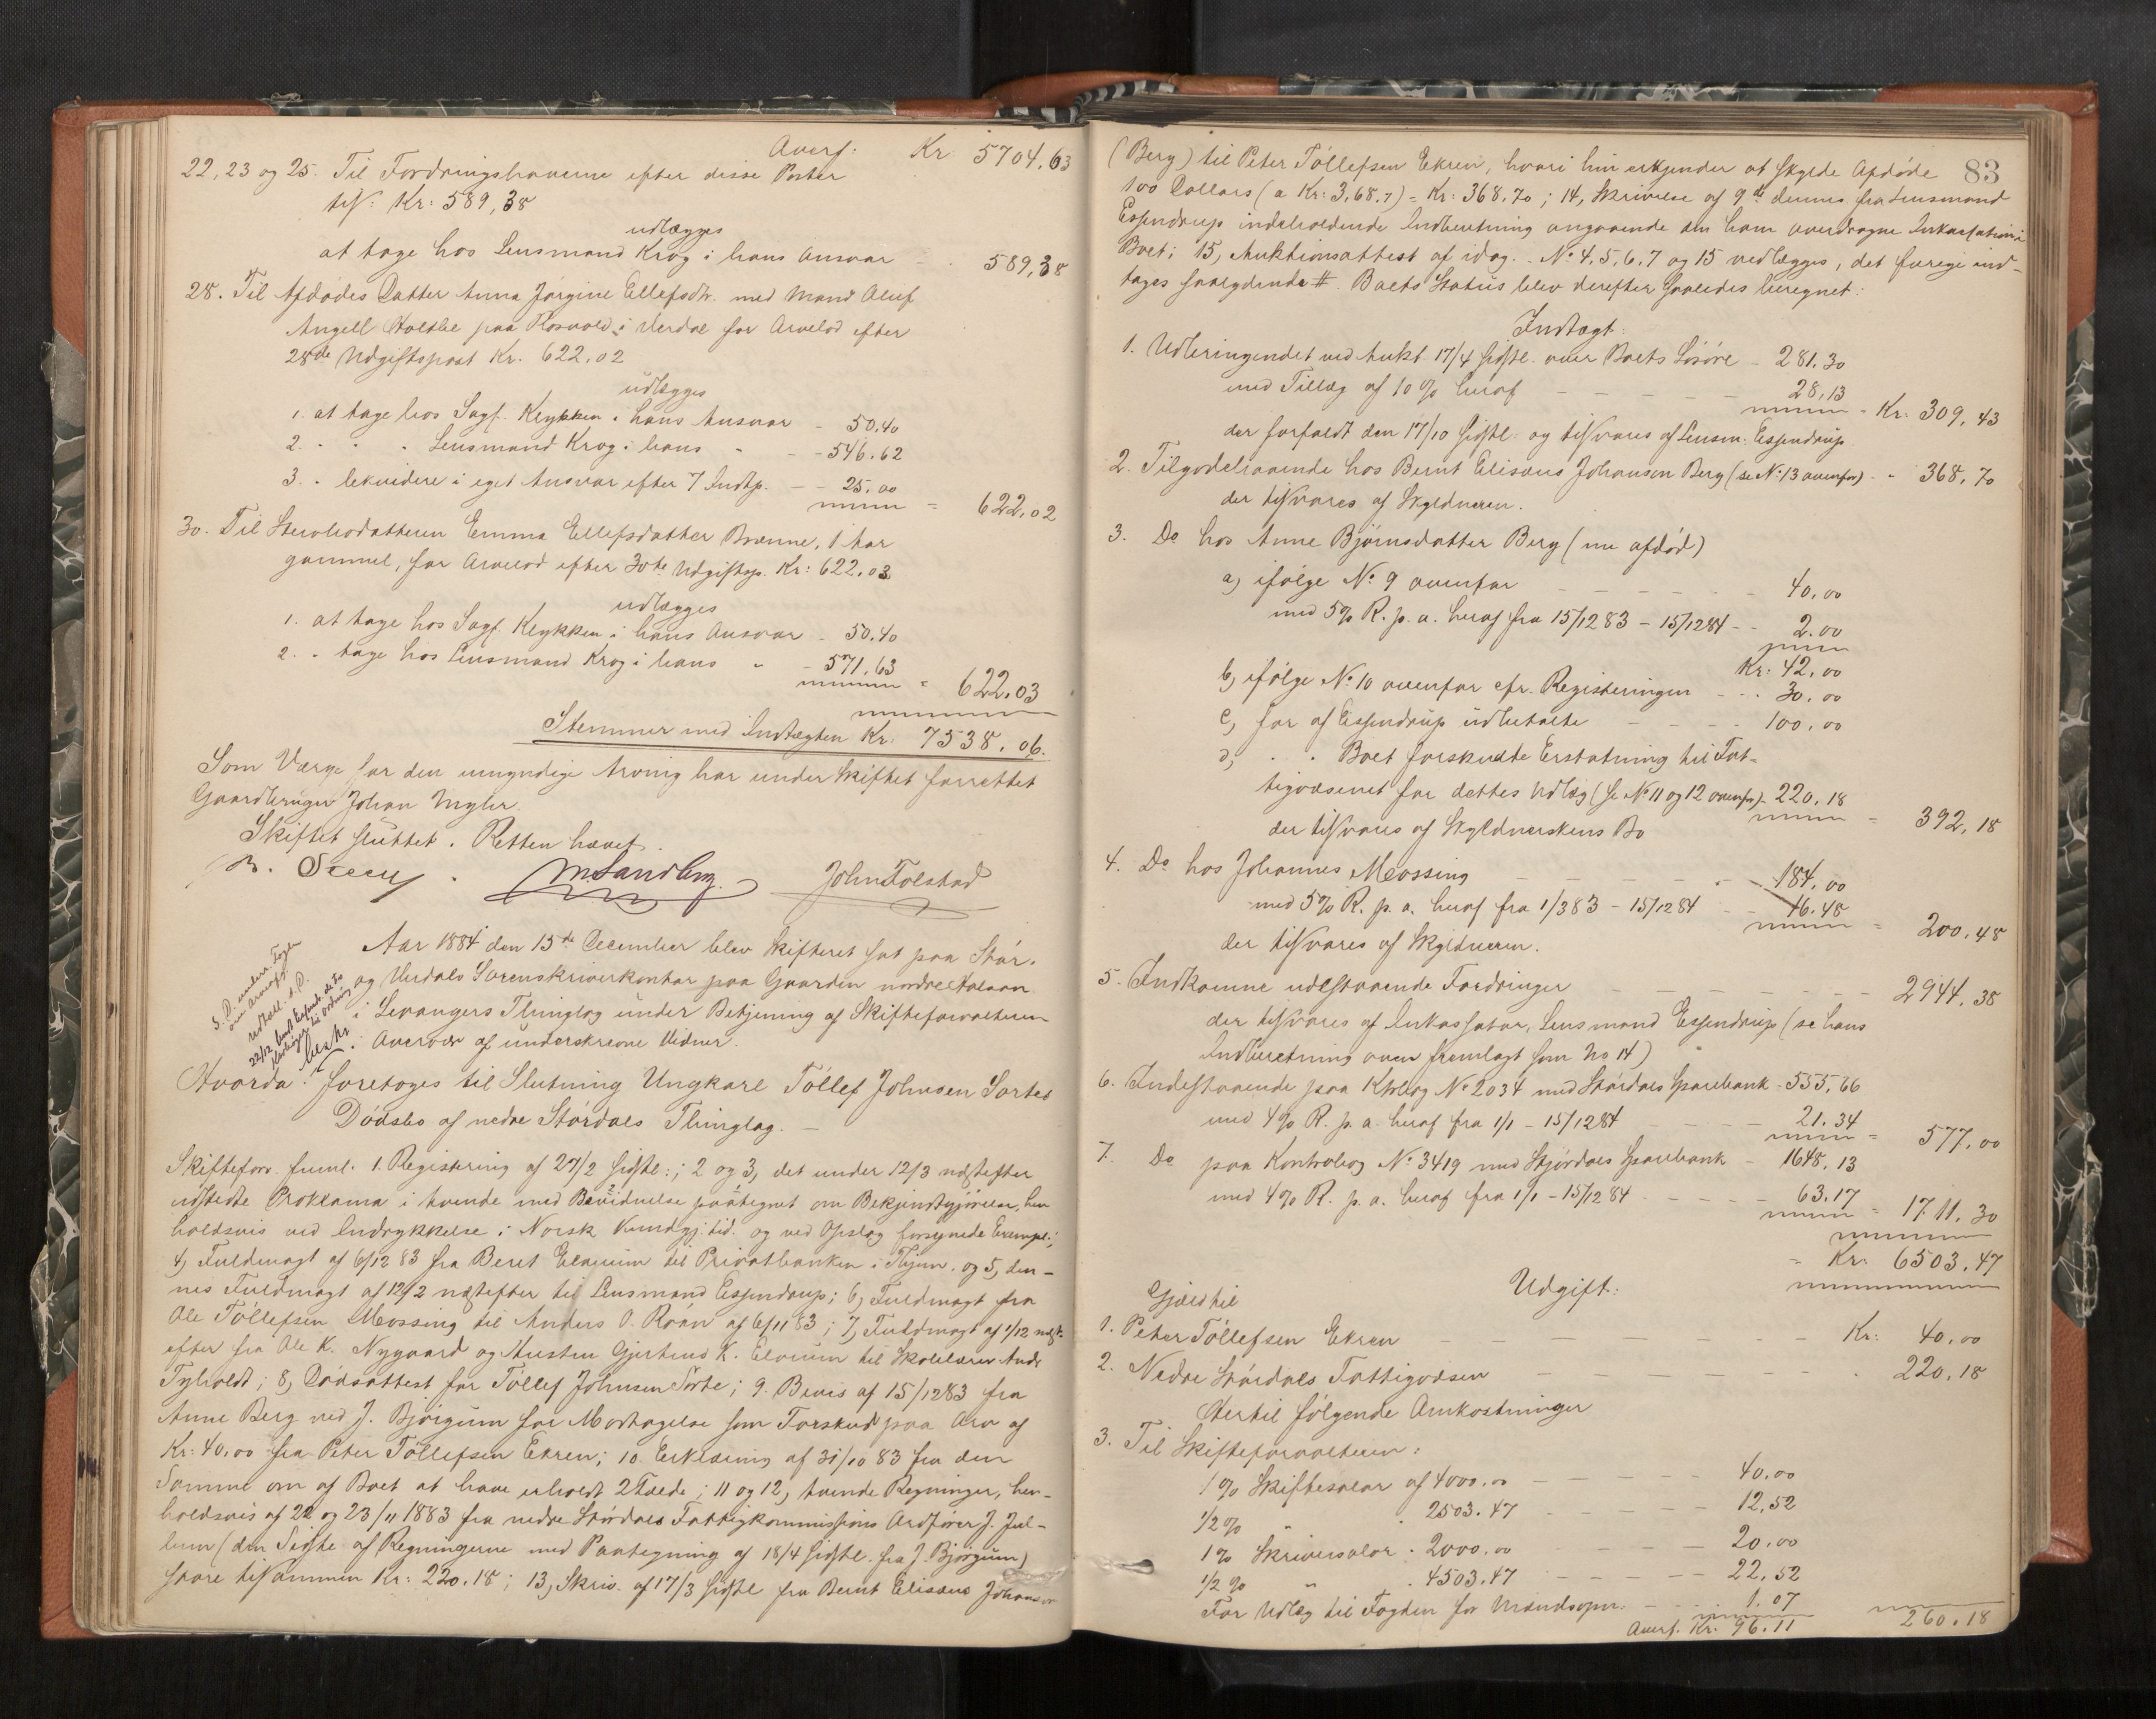 Overf. Kr. 5704,63
22, 23 og 25. Til Fordringshaverne efter disse Poster
tils: Kr: 589,38
udlægges
at tage hos Lensmand Krog i hans Ansvar - 589,38
28. Til Afdødes Datter Anna Jørgine Ellefsdtr. med Mand Oluf
Angell Holthe paa Rosvold i Verdal for Arvelod efter
28de Udgiftspost Kr. 622.02
udlægges
1. at tage hos Sagf. Klykken i hans Ansvar - 50.40
2. " " Lensmand Krog i hans " - 546.62
3. " lekvidere i eget Ansvar efter 7 Indtp. - - 25.00
= 622,02
30. Til Stervbodatteren Emma Ellefsdatter Brænne, 1 Aar
gammel, for Arvelod efter 30te Udgiftsp. Kr: 622.03
udlægges
1. at tage hos Sagf. Klykken i hans Ansvar - 50.40
2. " tage hos Lensmand Krog i hans " - 571.63
= 622.03
Stemmer med Indtægten Kr. 7538.06.
Som Værge for den umyndige Arving har under Skiftet forrettet
Gaardbruger Johan Myhr.
Skiftet sluttet. Retten hævet.
M. Sandberg. John Tolstad
Aar 1884 den 15de December blev Skifteret sat paa Stør-
og Verdals Sorenskriverkontor paa Gaarden nordre
i Levangers Thinglag under Betjening af Skifteforvalteren
Overvær af underskrevne Vidner.
Hvorda foretoges til Slutning Ungkarl Tøllef Johnsen Sortes
Dødsbo af nedre Størdals Thinglag. -
Skifteforv. freml. 1. Registering af 27/2 sidstl:; 2 og 3, det under 12/3 næstefter
udstedte Proklama i tvende med Bevidnelse paategnet om Bekjendtgjørelser, hen
holdsvis ved Indrykkelse i Norsk Kundgj.tid. og ved Opslag forsynede Exempl:;
4, Fuldmagt af 6/12 83 fra Beret Elverum til Privatbanken i Thjem. og 5, den-
nes Fuldmagt af 12/2 næstefter til Lensmand Essendrup; 6, Fuldmagt fra
Ole Tøllefsen Mossing til Anders O. Roån af 6/11 83; 7, Fuldmagt af 1/12 næst-
efter fra Ole K. Nygaard og Husten Gjertrud K. Elverum til Skolelærer Andr
Tyholdt; 8, Dødsattest for Tøllef Johnsen Sorte; 9. Bevis af 15/12 83 fra
Anne Berg ved J. Bjørgum for Modtagelse som Forskud paa Arv af
Kr: 40.00 fra Peter Tøllefsen Ekren; 10. Erklæring af 31/10 83 fra den
Samme om af Boet at have erholdt 2 Fælde; 11 og 12, tvende Regninger, hen-
holdsvis af 22 og 23/11 1883 fra nedre Størdals Fattigkommissions Ordfører J. Jul-
lum (den Sidste af Regningerne med Paategning af 18/4 sidstl. fra J. Bjørgum)
store tilsammen Kr: 220.18; 13, Skriv. af 17/3 sidstl fra Bernt Elisæus Johansen
83
(Berg) til Peter Tøllefsen Ekren, hvori hin erkjender at skylde Afdøde
100 Dollars (a Kr: 3,68.7) = Kr: 368.70; 14, Skrivelse af 9de dennes fra Lensmand
Essendrup indeholdende Indberetning angaaende den ham overdragne Inkassation i
Boet; 15, Auktionsattest af idag. - No 4, 5, 6, 7 og 15 vedlægges, det øvrige ind-
tages saalydende #. Boets Status blev derefter saaledes beregnet:
Indtægt:
1. Udbringendet ved Aukt. 17/4 sidstl. over Boets Løsøre - 281.30
med Tillæg af 10% heraf - - - - - 28,13
= Kr: 309,43
der forfaldt den 17/10 sidstl. og tilsvares af Lensm: Essendrup.
2. Tilgodehavende hos Bernt Elisæus Johansen Berg (se No 13 ovenfor) - - 368,70
der tilsvares af Skyldneren.
3. Do hos Anne Bjørnsdatter Berg (nu afdød)
a, ifølge No 9 ovenfor - - - - - 40.00
med 5% R. p. a. heraf fra 15/12 83 - 15/12 84 - - 2.00
Kr: 42,00
b, ifølge No 10 ovenfor cfr. Registeringen - - - 30.00
c, for af Essendrup udbetalte - - - - 100,00
d, " " Boet forskudte Erstatning til Fat-
tigvæsenet for dettes Udlæg (se No 11 og 12 ovenfor) - 220.18
= 392,18
der tilsvares af Skyldnerskens Bo
4. Do hos Johannes Mossing - - - - - 184.00
med 5% R. p. a. heraf fra 1/3 83 - 15/12 84 - - 16.48
= 200.48
der tilsvares af Skyldneren.
5. Indkomne udestaaende Fordringer - - - - - - - 2944.38
der tilsvares af Inkassator, Lensmand Essendrup (se hans
Indberetning oven fremlagt som No 14)
6. Indestaaende paa Ktrbog No 2034 med Størdals Sparebank - 555,66
med 4% R. p. a. heraf fra 1/1 - 15/12 84 - - - - 21.34
= 577.00
7. Do paa Kontrabog No 3419 med Stjørdals Sparebank - 1648.13
med 4% R. p. a. heraf fra 1/1 - 15/12 84 - - - - 63.17
= 1711.30
= Kr. 6503.47
Udgift:
Gjæld til
1. Peter Tøllefsen Ekren - - - - - - - Kr: 40.00
2. Nedre Størdals Fattigvæsen - - - - - - - 220.18
Hertil følgende Omkostninger
3. Til Skifteforvalteren:
1% Skiftesalær af 4000.00 - - - - - 40.00
1/2% " " 2503.47 - - - - - 12.52
1% Skriversalær " 2000.00 - - - - - 20.00
1/2% " " 4503.47 - - - - - 22,52
For Udlæg til Fogden for Mandsopn. - - - 1.07
Overf. Kr. 96.11 260.18